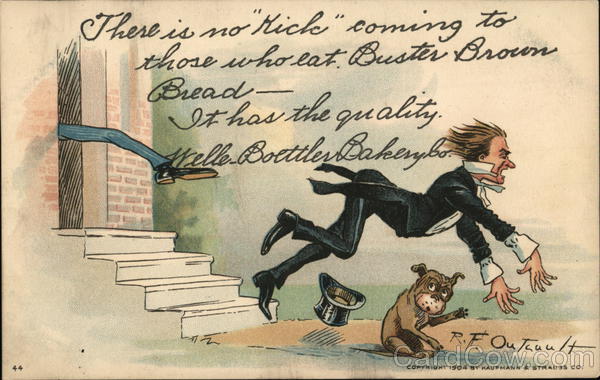 There is no "Kick" coming to
those who eat. Buster Brown
Bread —
It has the quality.
Welle-Boettler Bakery Co.
R. F. Outcault
44
COPYRIGHT 1904 BY KAUFMANN & STRAUSS CO.
CardCow.com